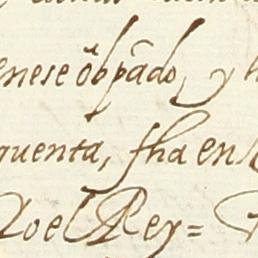 enese õbpãdo, y h
quenta, fha en
Yo el Rey =